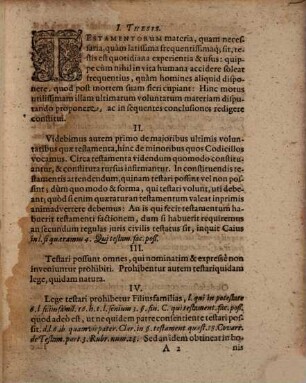 I. THESIS.
TESTAMENTORUM materia, quam necessaria, quàm latissima frequentissimaq; sit, testis est quotidiana experientia & usus: quippe cùm nihil in vita humana accidere soleat
frequentius, quàm homines aliquid disponere, quod post mortem suam fieri cupiant: Hinc motus
utilissimam illam ultimarum voluntatum materiam disputando proponere, ac in sequentes conclusiones redigere
constitui.
II
Videbimus autem primo de majoribus ultimis voluntatibus quæ testamenta, hinc de minoribus quos Codicillos
vocamus. Circa testamenta videndum quomodo constituantur, & constituta rursus infirmantur. In constituendis testamentis attendendum, quinam testari possint vel non possint; dùm quo modo & forma, qui testari volunt, uti debeant; quòd si enim quæratur an testamentum valeat inprimis
animadvertere debemus: An is qui fecit testamentum habuerit testamenti factionem, dum si habuerit requiremus
an secundum regulas juris civilis testatus sit, inquit Caius
in l. si quæramus 4. Qui testam. fac. poss.
III.
Testari possunt omnes, qui nominatim & expressè non
inveniuntur prohibiti. Prohibentur autem testari quidam
lege, quidam natura.
IV.
Lege testari prohibetur Filiusfamilias, l. qui in potestate
quod adeò est, ut ne quidem patre constitente testari possit.
Sed an idem obtineat in bo-
A 2
nis